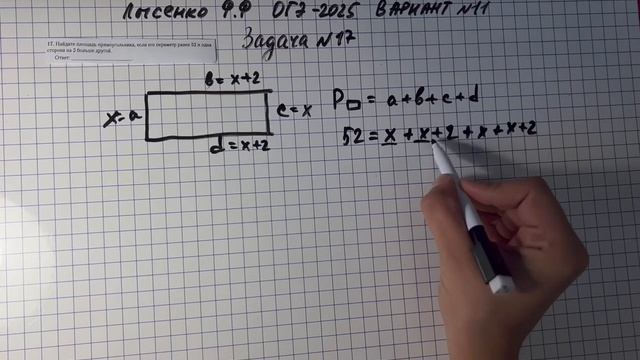 Лысенко Ф.Ф ОГЭ-2025 ВАРИАНТ №11
Задача №17
17. Найдите площадь прямоугольника, если его периметр равен 52 и одна
сторона на 2 больше другой.
Ответ:
b = x+2
x = a
c = x
d = x+2
P▭ = a+b+c+d
52 = x + x+2 + x + x+2